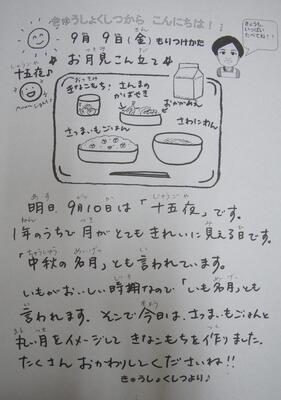 きゅうしょくしつから こんにちは！
きょうも、
いっぱい
たべてね！！
9月 9日(金) もりつけかた
十五夜
☆お月見こん立て☆
おつきみ
きなこもち！
さんまの
かばやき
おかかあえ
さつまいもごはん
さわにわん
明日、9月10日は「十五夜」です。
1年のうちで月がとてもきれいに見える日です。
「中秋の名月」とも言われています。
いもがおいしい時期なので「いも名月」とも
言われます。そこで今日は、さつまいもごはんと
丸い月をイメージしてきなこもちを作りました。
たくさんおかわりしてくださいね！！
きゅうしょくしつより♪